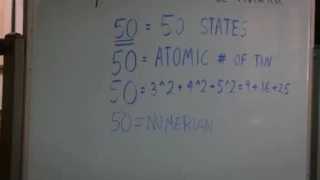 50 = 50 STATES
50 = ATOMIC # OF TIN
50 = 3^2+4^2+5^2=9+16+25
50 = NUMERIAN